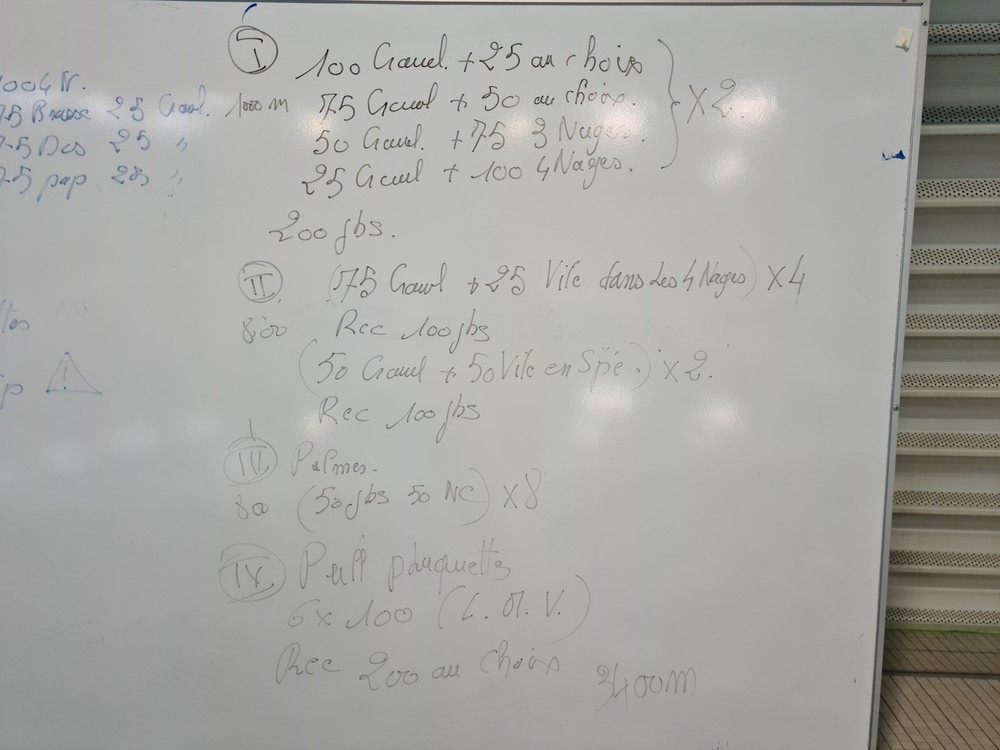 1004N.
75 Brasse 25 Crawl.
75 Dos 25 "
75 pap 25 "
I 100 Crawl. + 25 au choix
1000m 75 Crawl + 50 au choix. } X2
50 Crawl. + 75 3 Nages.
25 Crawl + 100 4 Nages.
200 jbs.
II (75 Crawl + 25 Vite dans les 4 Nages) X4
800 Rec 100 jbs
(50 Crawl + 50 Vite en Spé.) X2.
Rec 100 jbs
III Palmes.
800 (50 jbs 50 NC) X8
IV Pull plaquettes
6x100 (L.M.V.)
Rec 200 au choix 3400m